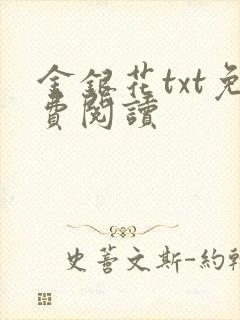 金銀花txt免
費閱讀
史蒂文斯-約翰